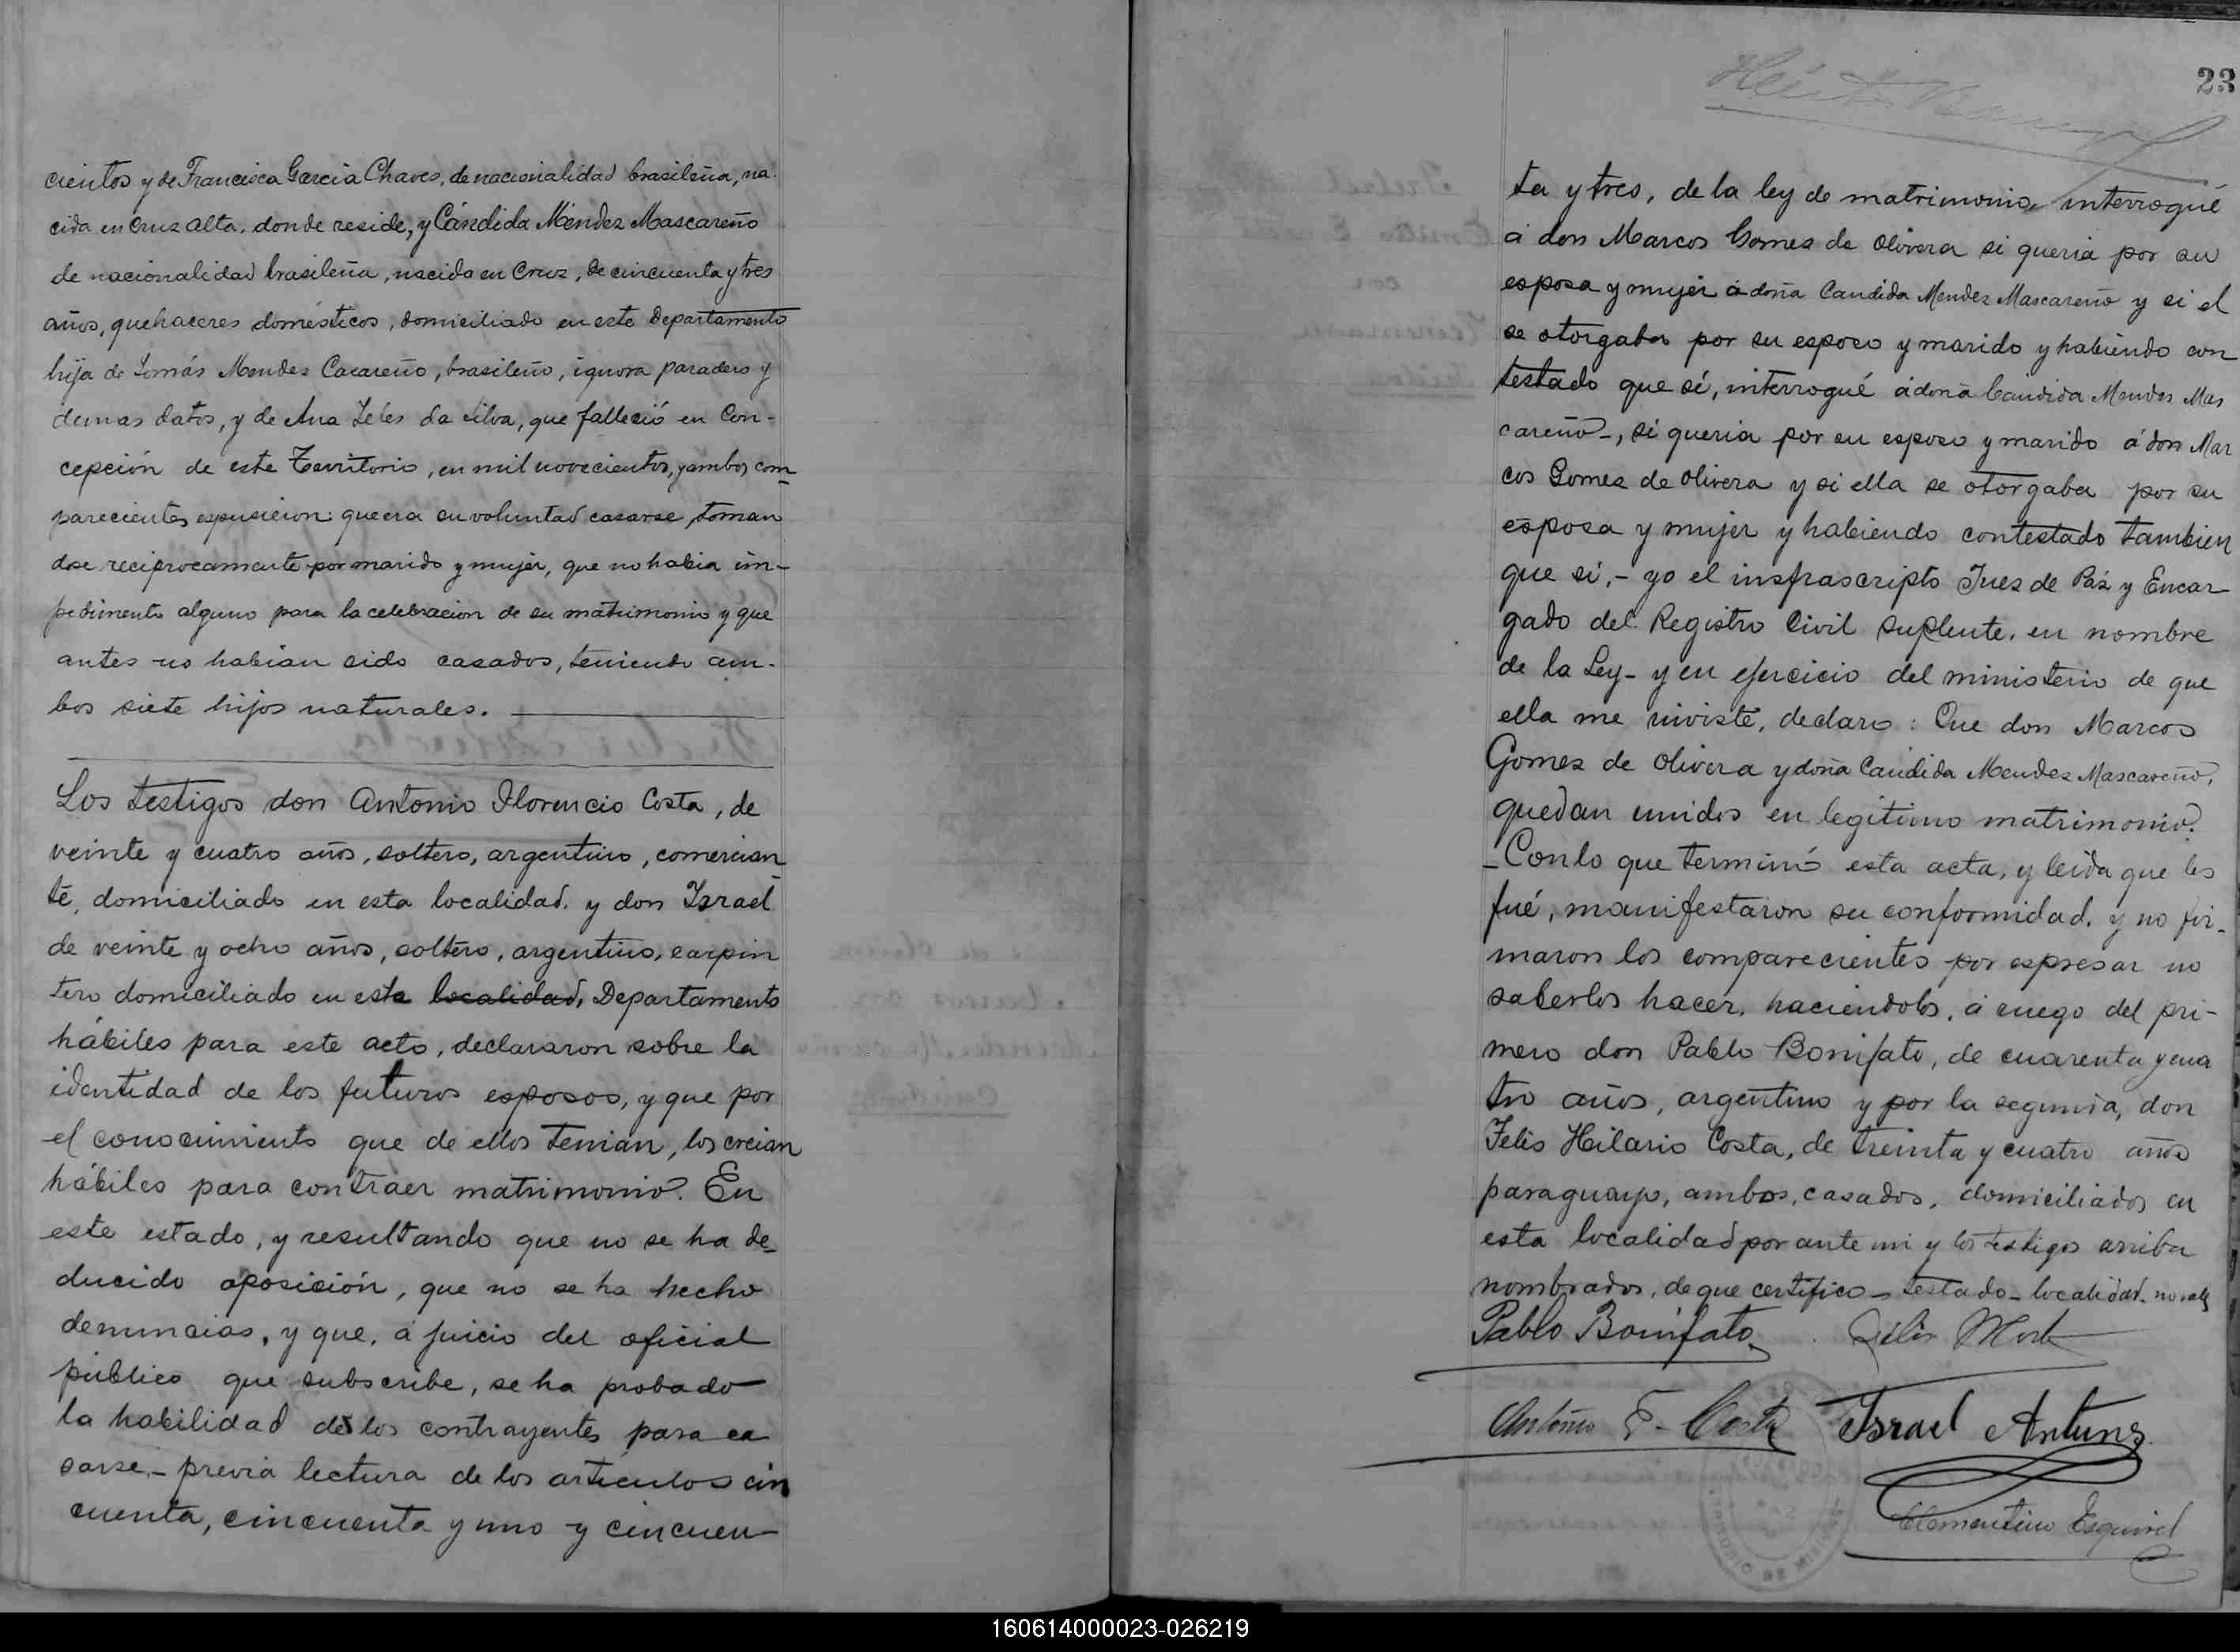 cientos y de Francisca Garcia Chaves, de nacionalidad brasileña, na-
cida en Cruz Alta, donde reside, y Cándida Méndez Mascareño
de nacionalidad brasileña, nacida en Cruz, de cincuenta y tres
años, quehaceres domésticos, domiciliado en este Departamento
hija de Tomás Mendes Cacareño, brasileño, ignora paradero y
demas datos, y de Ana Teles da Silva, que falleció en Con-
cepción de este Territorio, en mil novecientos, y ambos com
parecientes espusieron: que era su voluntad casarse, toman
dose reciprocamente por marido y mujer, que no habia im-
pedimento alguno para la celebracion de su matrimonio y que
antes no habian sido casados, teniendo am-
bos siete hijos naturales.
Los testigos don Antonio Florencio Costa, de
veinte y cuatro años, soltero, argentino, comercian
te, domiciliado en esta localidad. y don Israel
de veinte y ocho años, soltero, argentino, carpin
tero domiciliado en este localidad, Departamento
hábiles para este acto, declararon sobre la
identidad de los futuros esposos, y que por
el conocimiento que de ellos tenian, los creian
hábiles para contraer matrimonio. En
este estado, y resultando que no se ha de-
ducido oposición, que no se ha hecho
denuncias, y que, á juicio del oficial
público que subscribe, se ha probado
la habilidad de los contrayentes para ca
sarse,- previa lectura de los articulos cin
cuenta, cincuenta y uno y cincuen-
23
ta y tres, de la ley de matrimonio, interrogué
á don Marcos Gomes de Olivera si queria por su
esposa y mujer á doña Candida Mendez Mascareño y si el
se otorgaba por su esposo y marido y habiendo con
testado que sí, interrogué á doña Candida Mendes Mas
careño-, si queria por su esposo y marido á don Mar
cos Gomez de Olivera y si ella se otorgaba por su
esposa y mujer y habiendo contestado tambien
que si,- yo el insfrascripto Juez de Páz y Encar-
gado del Registro Civil suplente, en nombre
de la Ley- y en ejercicio del ministerio de que
ella me inviste, declaro: Que don Marcos
Gomez de Olivera y doña Candida Mendez Mascareño,
quedan unidos en legitimo matrimonio.
-Con lo que terminó esta acta, y leida que les
fué, manifestaron su conformidad, y no fir-
maron los comparecientes por espresar no
saberlos hacer, haciendolos, á ruego del pri-
mero don Pablo Bonifato, de cuarenta y cua
tro años, argentino y por la segunda, don
Felis Hilario Costa, de treinta y cuatro años
paraguayo, ambos, casados, domiciliados en
esta localidad por ante mi y los testigos arriba
nombrados, de que certifico- testado- localidad- no vale
Pablo Bonifato
Antonio F- Costa Israel Antunz
Clementino Esquivel
160614000023-026219